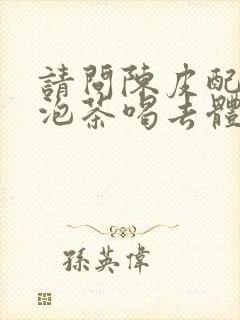 請問陳皮配
泡茶喝去體
孫英偉